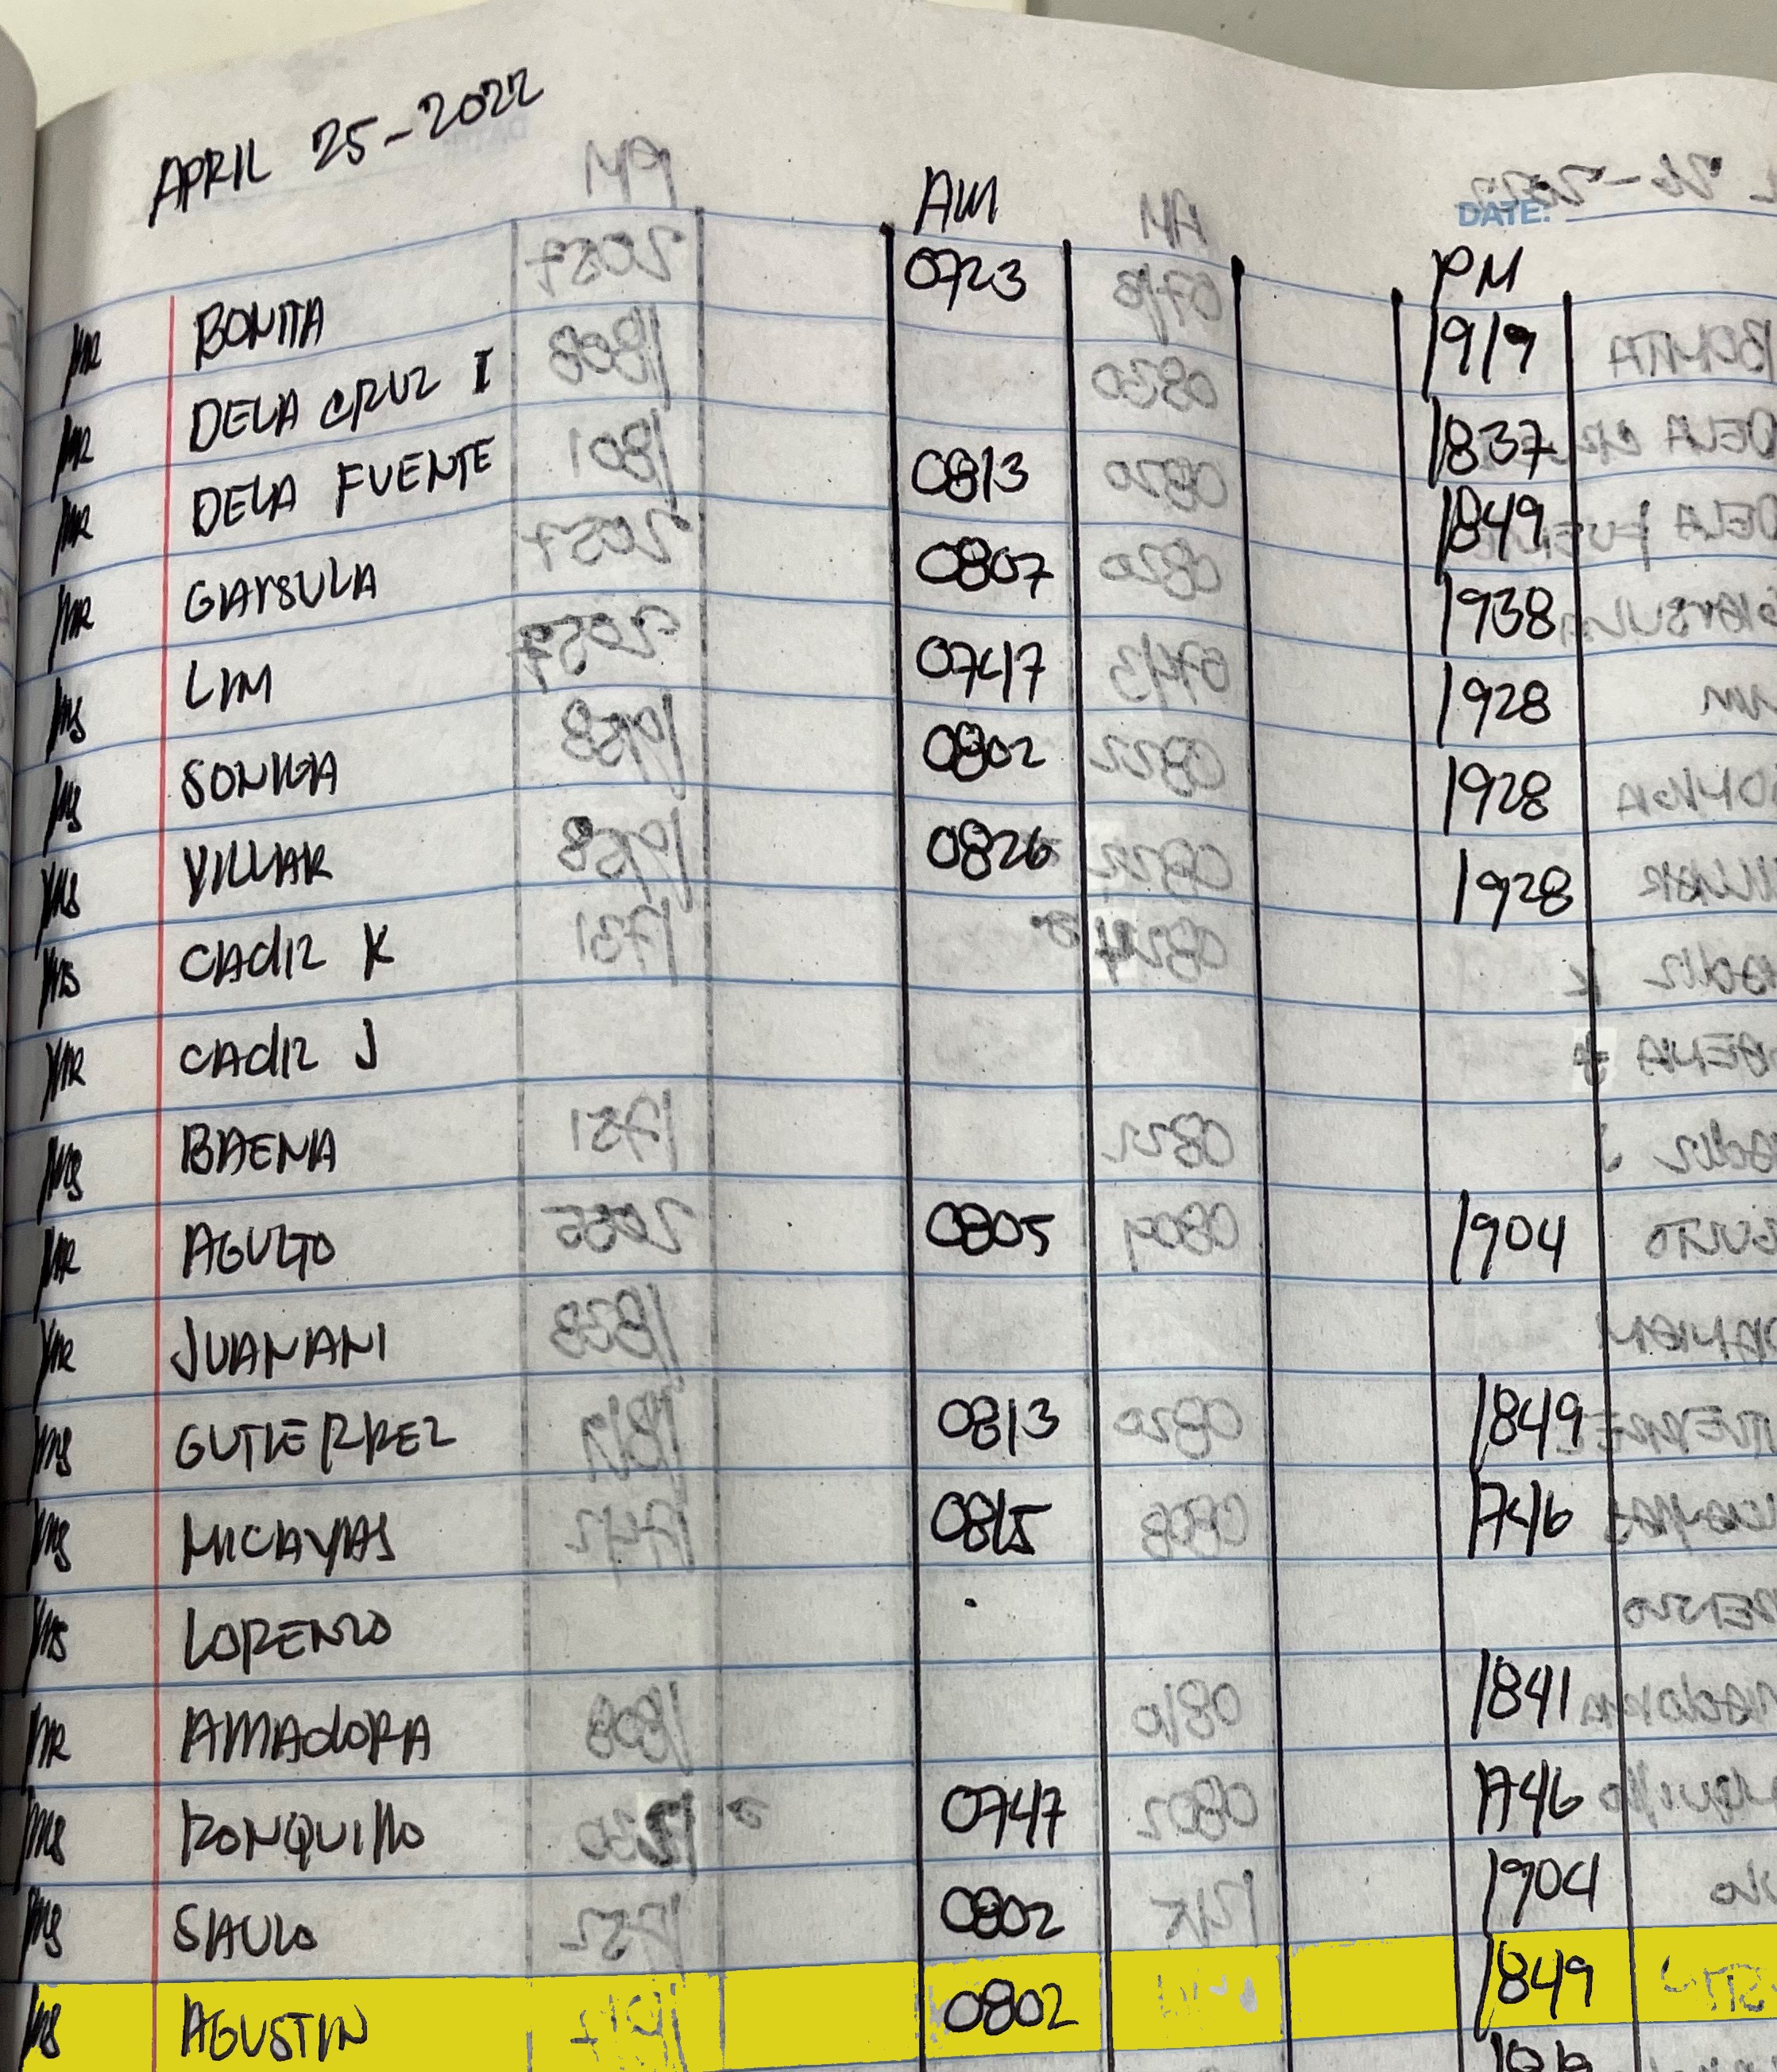 APRIL 25-2022
AM
DATE:
PM
MR BONITA 0723 1919
MR DELA CRUZ I 1837
MR DELA FUENTE 0813 1849
MR GAYSULA 0807 1938
MS LIM 0747 1928
MS SONIGA 0802 1928
MS VILLAR 0826 1928
MS CADIZ K
MR CADIZ J
MS BAENA
MR AGULTO 0805 1904
MR JUANANI
MS GUTIERREZ 0813 1849
MS MICAYAS 0815 1746
MS LORENZO
MR AMADORA 1841
MS RONQUILLO 0747 1746
MS SAULO 0802 1904
MS AGUSTIN 0802 1849